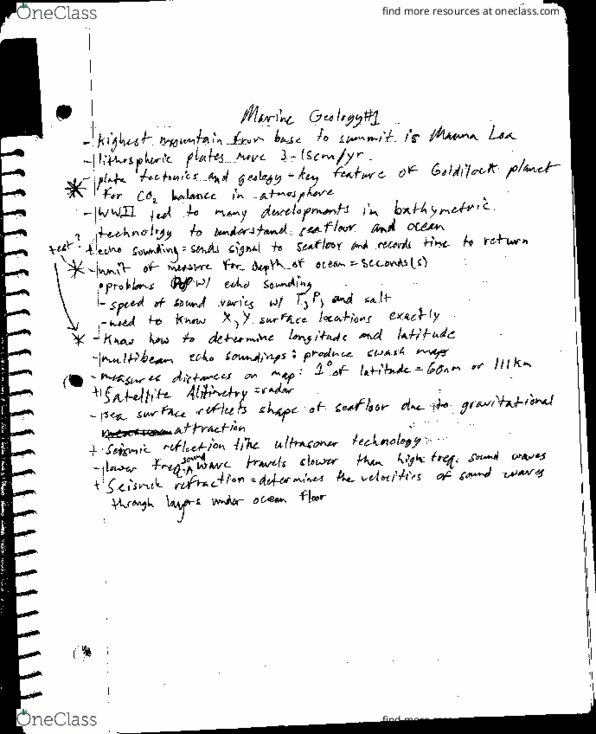 OneClass
find more resources at oneclass.com
Marine Geology #1
- highest mountain from base to summit is Mauna Loa
- lithospheric plates move 3-15cm/yr.
- plate tectonics and geology - key feature of Goldilock planet
for CO2 balance in atmosphere
- WWII led to many developments in bathymetric
technology to understand seafloor and ocean
test?
+ echo sounding = sends signal to seafloor and records time to return
- unit of measure for depth of ocean = seconds(s)
• problems w/ echo sounding
- speed of sound varies w/ T, P, and salt
- need to know X, Y surface locations exactly
- know how to determine longitude and latitude
- multibeam echo soundings: produce swash maps
- measures distances on map: 1° of latitude = 60nm or 111km
+ Satellite Altimetry = radar
- sea surface reflects shape of seafloor due to gravitational
attraction
+ Seismic reflection like ultrasoner technology
- lower freq. sound wave travels slower than high freq. sound waves
+ Seismic refraction = determines the velocities of sound waves
through layers under ocean floor
OneClass
find more resources at oneclass.com